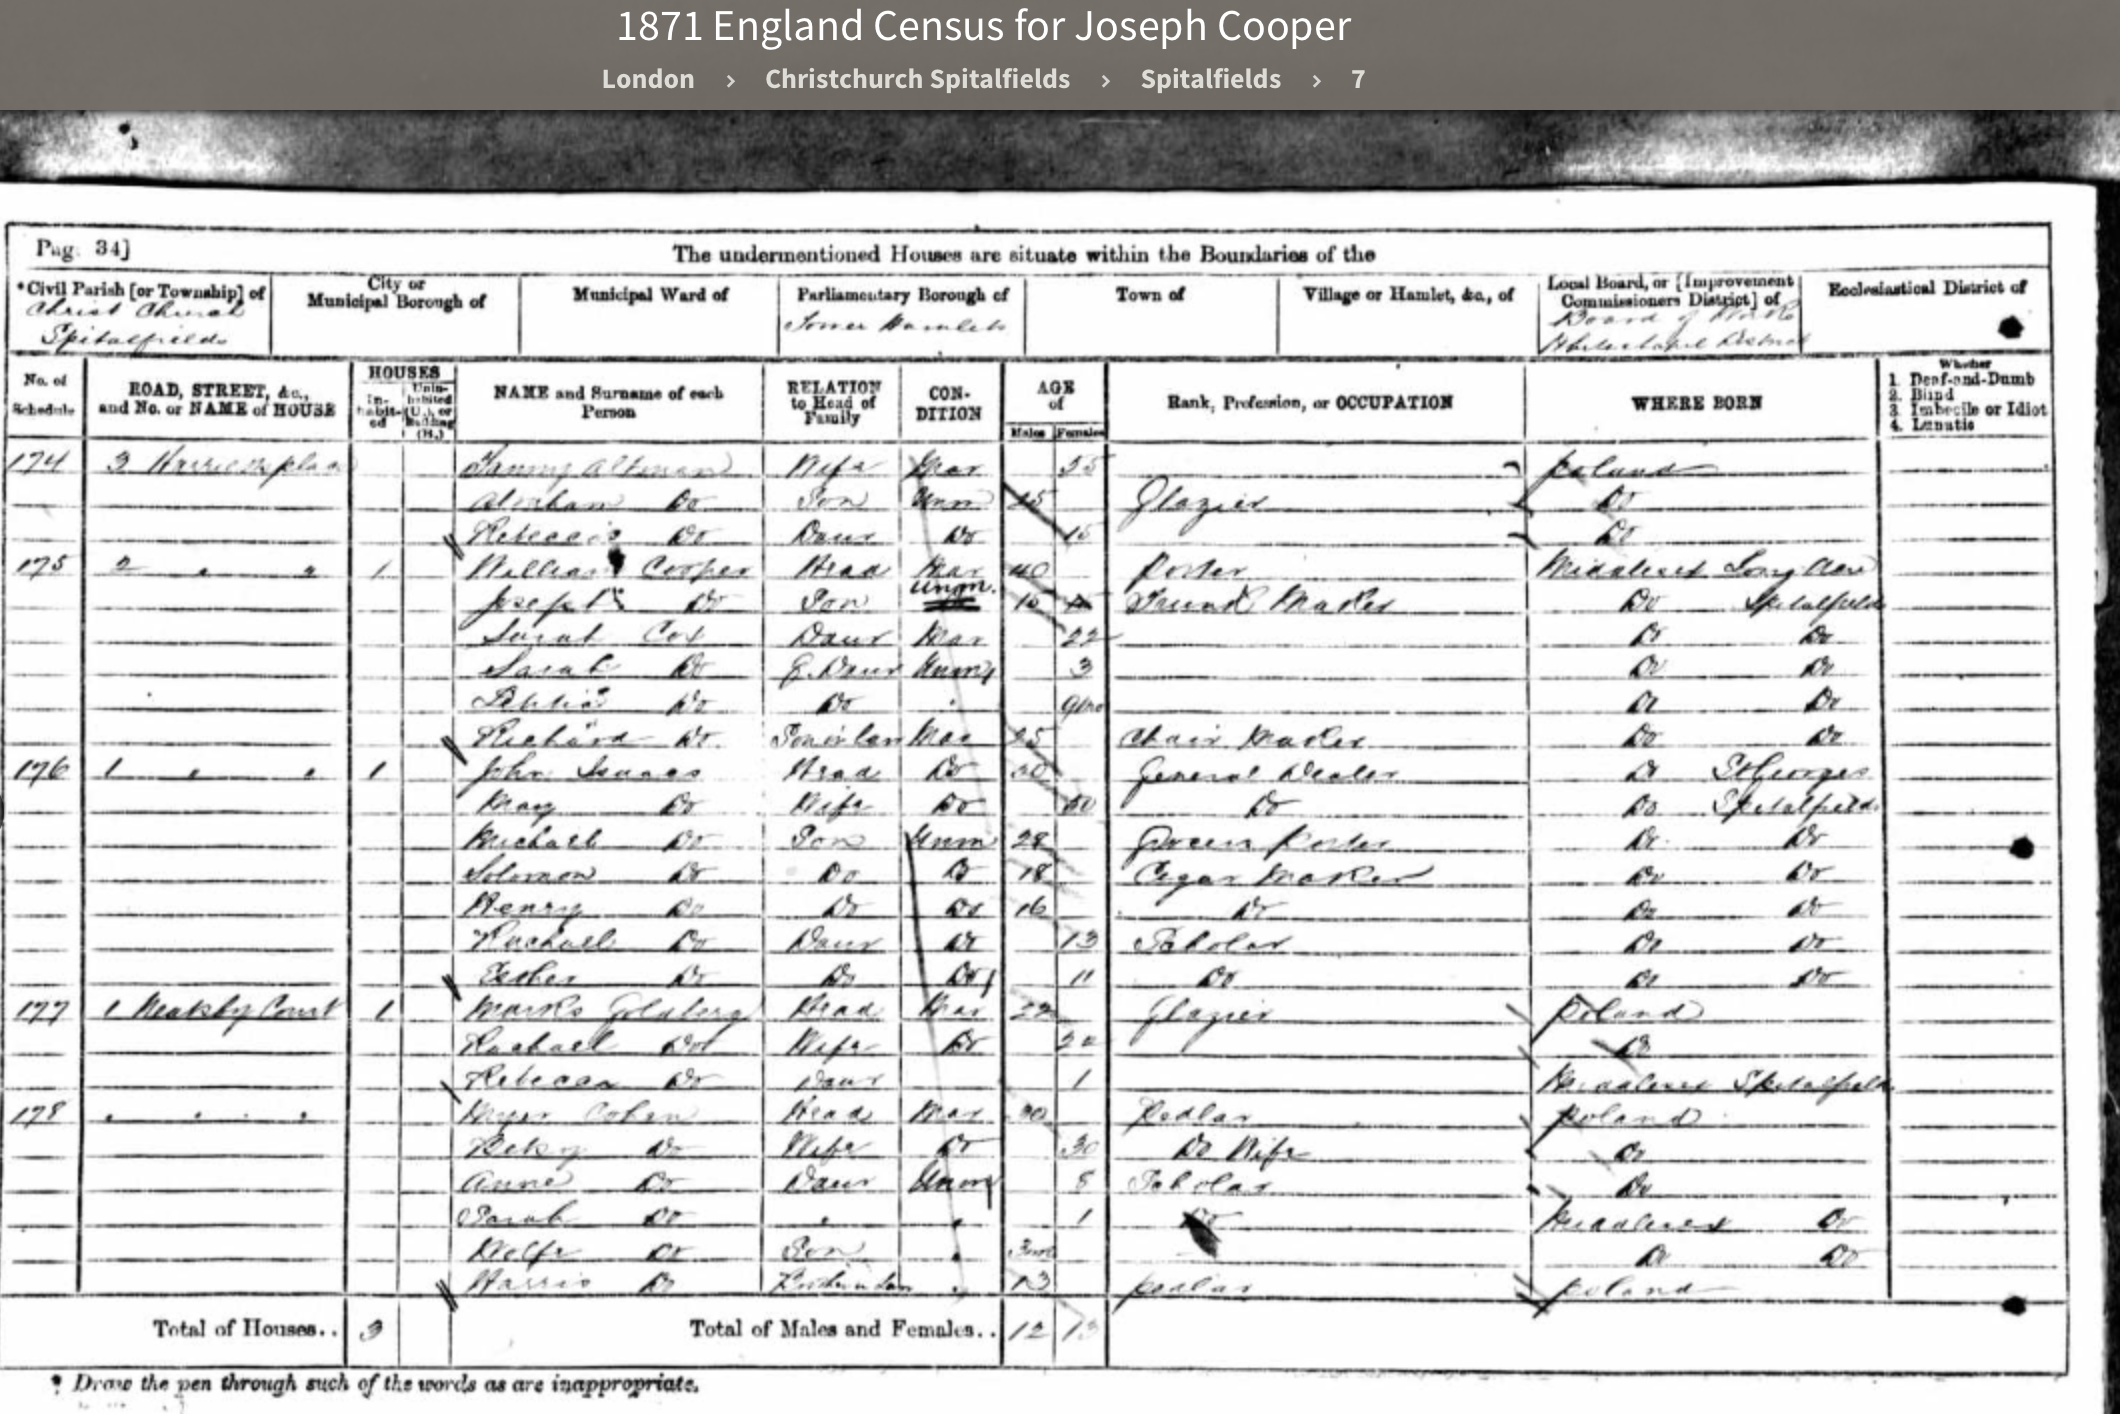 1871 England Census for Joseph Cooper
London › Christchurch Spitalfields › Spitalfields › 7
Pag. 34]
The undermentioned Houses are situate within the Boundaries of the
*Civil Parish [or Township] of Christ Church Spitalfields
City or Municipal Borough of
Municipal Ward of
Parliamentary Borough of Tower Hamlets
Town of
Village or Hamlet, &c., of
Local Board, or [Improvement Commissioners District] of Board of Works Whitechapel District
Ecclesiastical District of
No. of Schedule
ROAD, STREET, &c., and No. or NAME of HOUSE
HOUSES
In-habit-ed
Unin-habited (U.), or Building (B.)
NAME and Surname of each Person
RELATION to Head of Family
CON-DITION
AGE of
Males Females
Rank, Profession, or OCCUPATION
WHERE BORN
Whether
1. Deaf-and-Dumb
2. Blind
3. Imbecile or Idiot
4. Lunatic
174 3 Fanny Altman Wife Mar 55 Poland
Abraham Do Son Unm Glazier Do
Rebecca Do Daur Do 15 Do
175 2 " " 1 William Cooper Head Mar 40 Porter Middlesex Long Acre
Joseph Do Son Unm. 15 Trunk Maker Do Spitalfields
Sarah Cox Daur Mar 22 Do Do
Sarah Do G. Daur Unm 3 Do Do
Do Do 9mo Do Do
Richard Do. Son in law Mar 25 Chair Maker Do Do
176 1 " " 1 John Isaacs Head Do General Dealer Do St Georges
May Do Wife Do 50 Do Do Spitalfields
Michael Do Son Unm 28 Porter Do Do
Solomon Do Do Do 18 Cigar Maker Do Do
Henry Do Do Do 16 Do Do Do
Rachael Do Daur Do 13 Scholar Do Do
Esther Do Do Do 11 Do Do Do
177 1 Court 1 Marks Goldberg Head Mar 22 Glazier Poland
Rachael Do Wife Do Do
Rebecca Do Daur 1 Middlesex Spitalfields
178 " " " Myer Cohen Head Mar 30 Pedlar Poland
Betsy Do Wife Do 30 Do Wife Do
Anne Do Daur Unm 8 Scholar Do
Sarah Do " " 1 Do Middlesex Do
Wolfe Do Son " 3mo Do Do
Harris Do " 13 pedlar Poland
Total of Houses.. 3
Total of Males and Females.. 12 13
* Draw the pen through such of the words as are inappropriate.